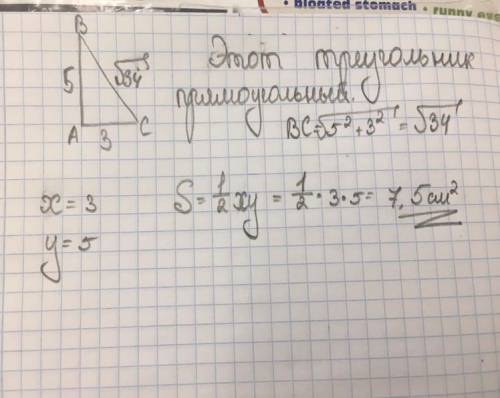 • bloated stomach • runny
B
Этот треугольник
5 √34
прямоугольный.
BC=√5²+3² = √34
A 3 C
x = 3
S = 1/2 xy = 1/2 · 3 · 5 = 7,5 см²
y = 5